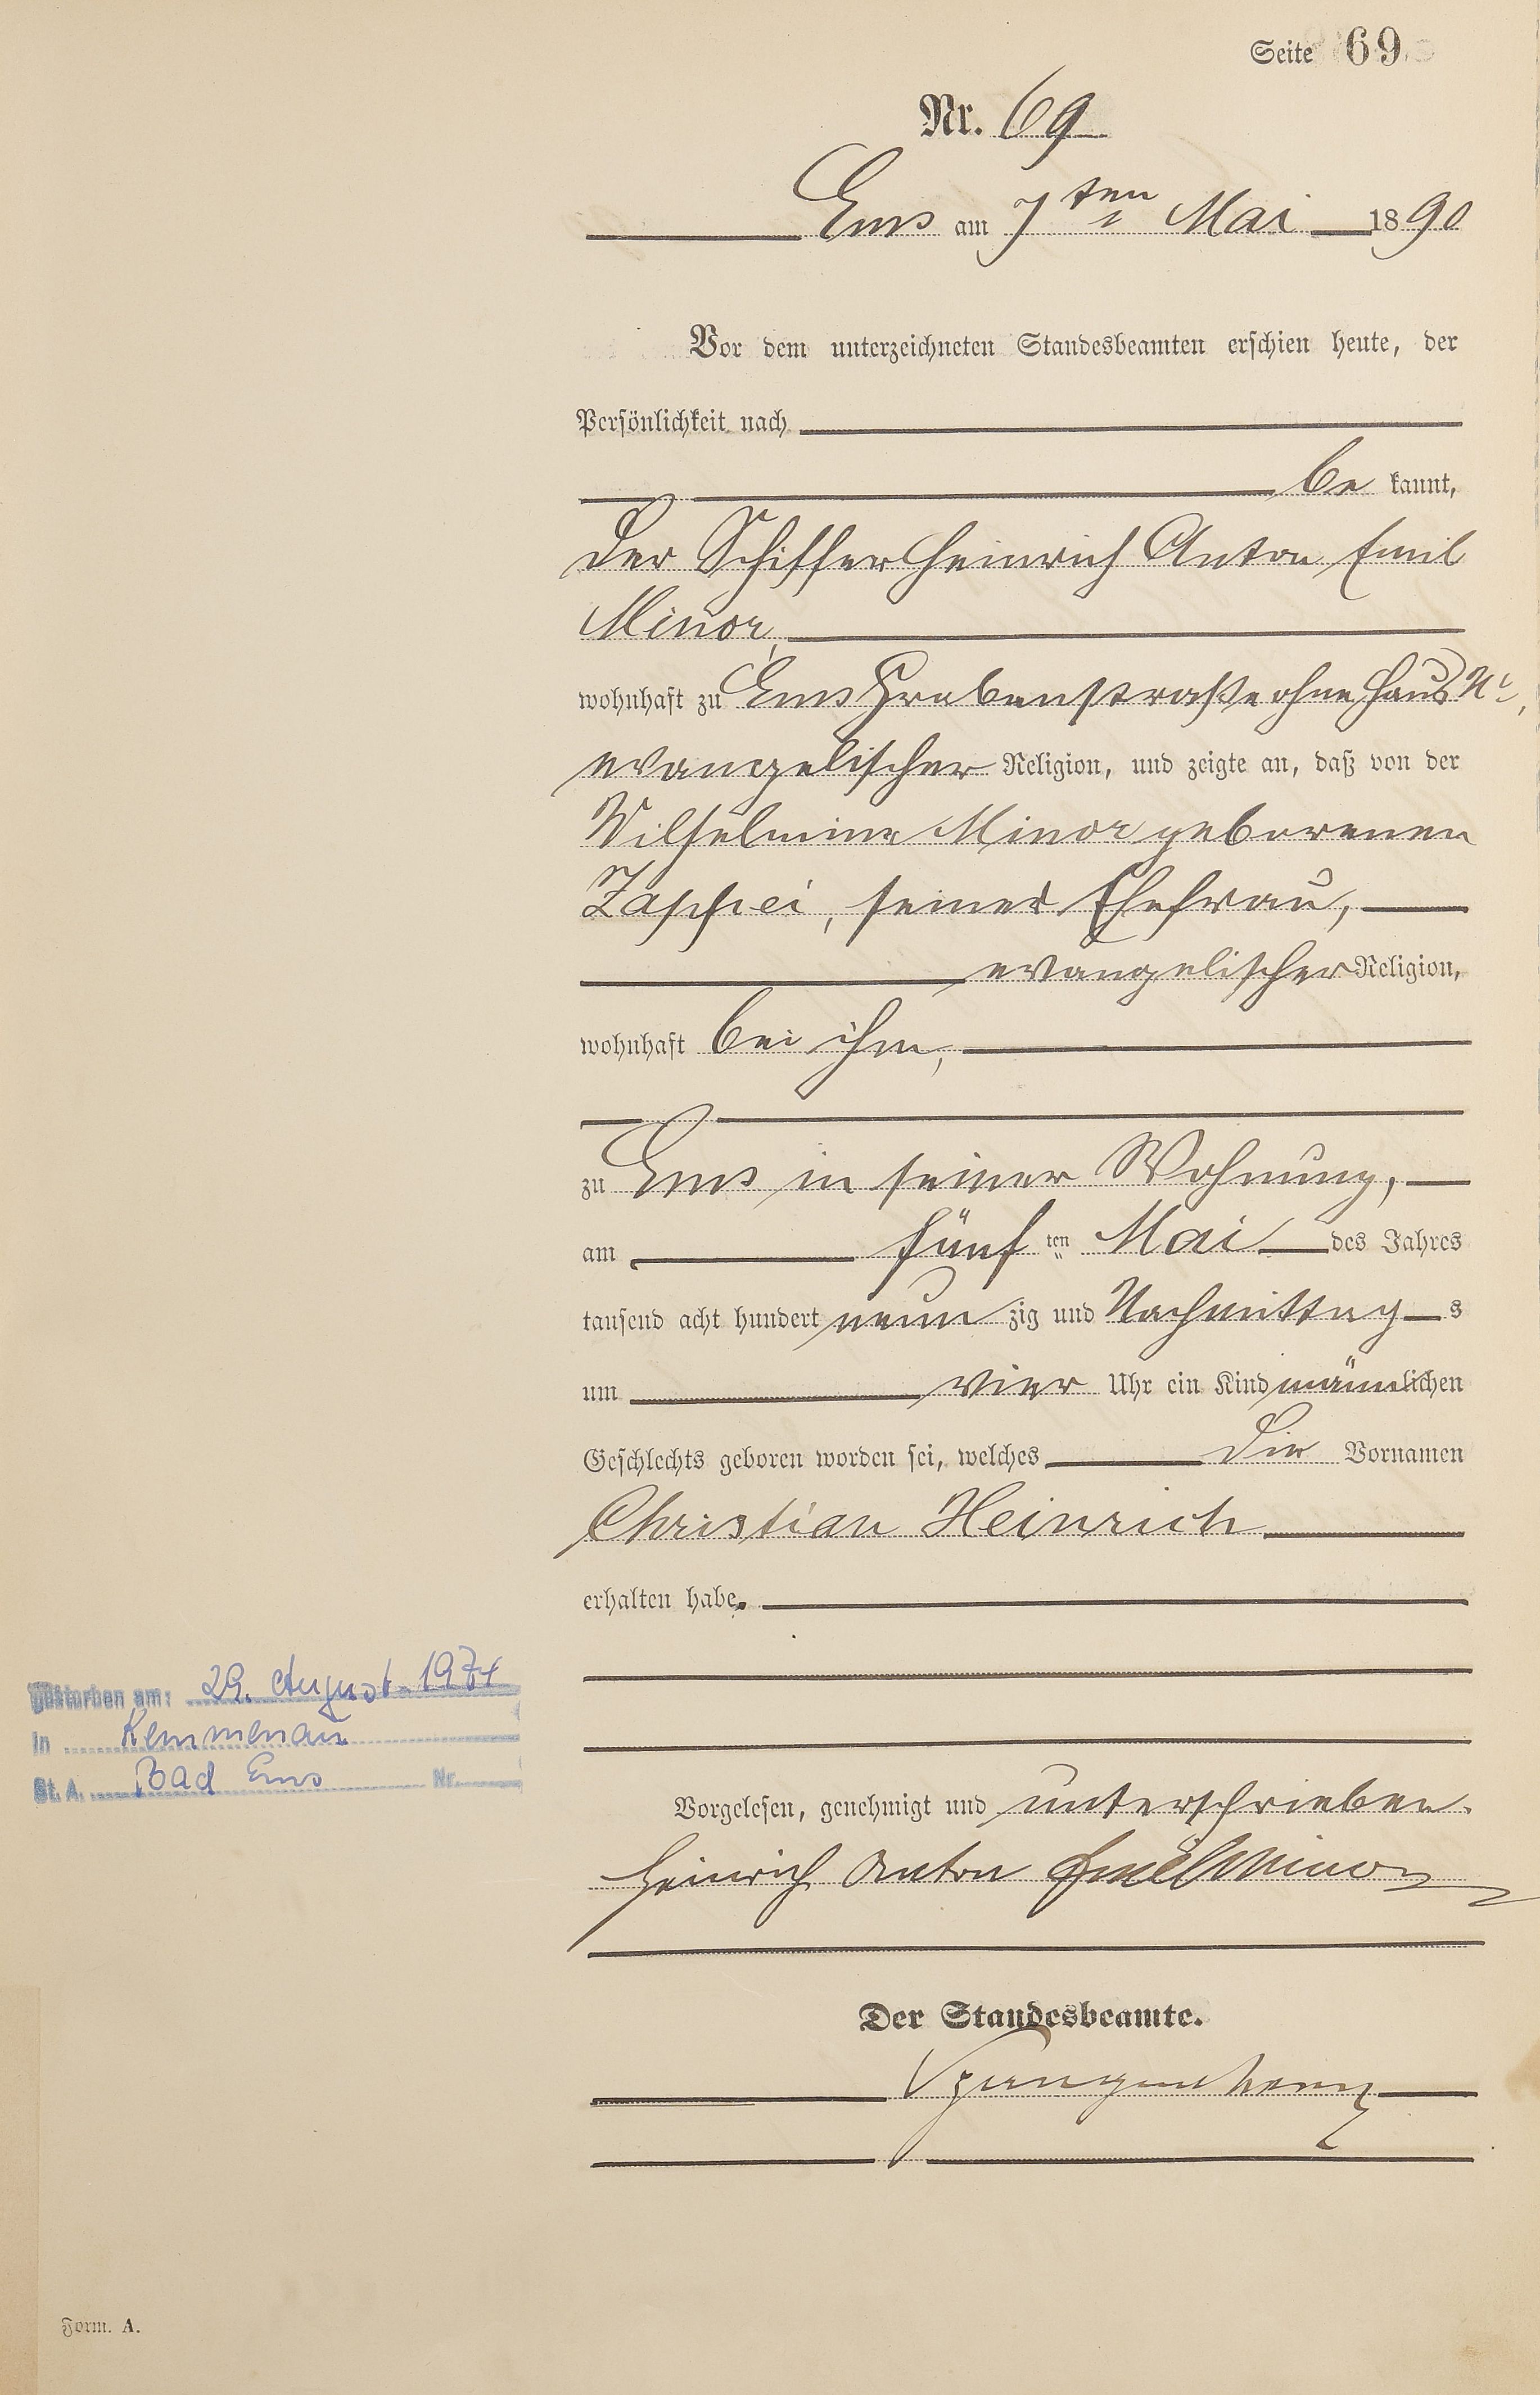 Seite 69
Nr. 69
Ems am 7ten Mai 1890
Vor dem unterzeichneten Standesbeamten erschien heute, der
Persönlichkeit nach
be kannt,
der Schiffer Heinrich Anton Emil
Minor,
wohnhaft zu Ems Grabenstraße ohne Haus Nr,
evangelischer Religion, und zeigte an, daß von der
Wilhelmine Minor geborenen
seiner Ehefrau,
evangelischer Religion,
wohnhaft bei ihm,
zu Ems in seiner Wohnung,
am fünf ten Mai des Jahres
tausend acht hundert neun zig und Nachmittag s
um vier Uhr ein Kind männlichen
Geschlechts geboren worden sei, welches die Vornamen
Christian Heinrich
erhalten habe.
gestorben am: 29. August 1974
in Kemmenau
St. A. Bad Ems Nr.
Vorgelesen, genehmigt und unterschrieben.
Heinrich Anton Emil Minor
Der Standesbeamte.
Form. A.